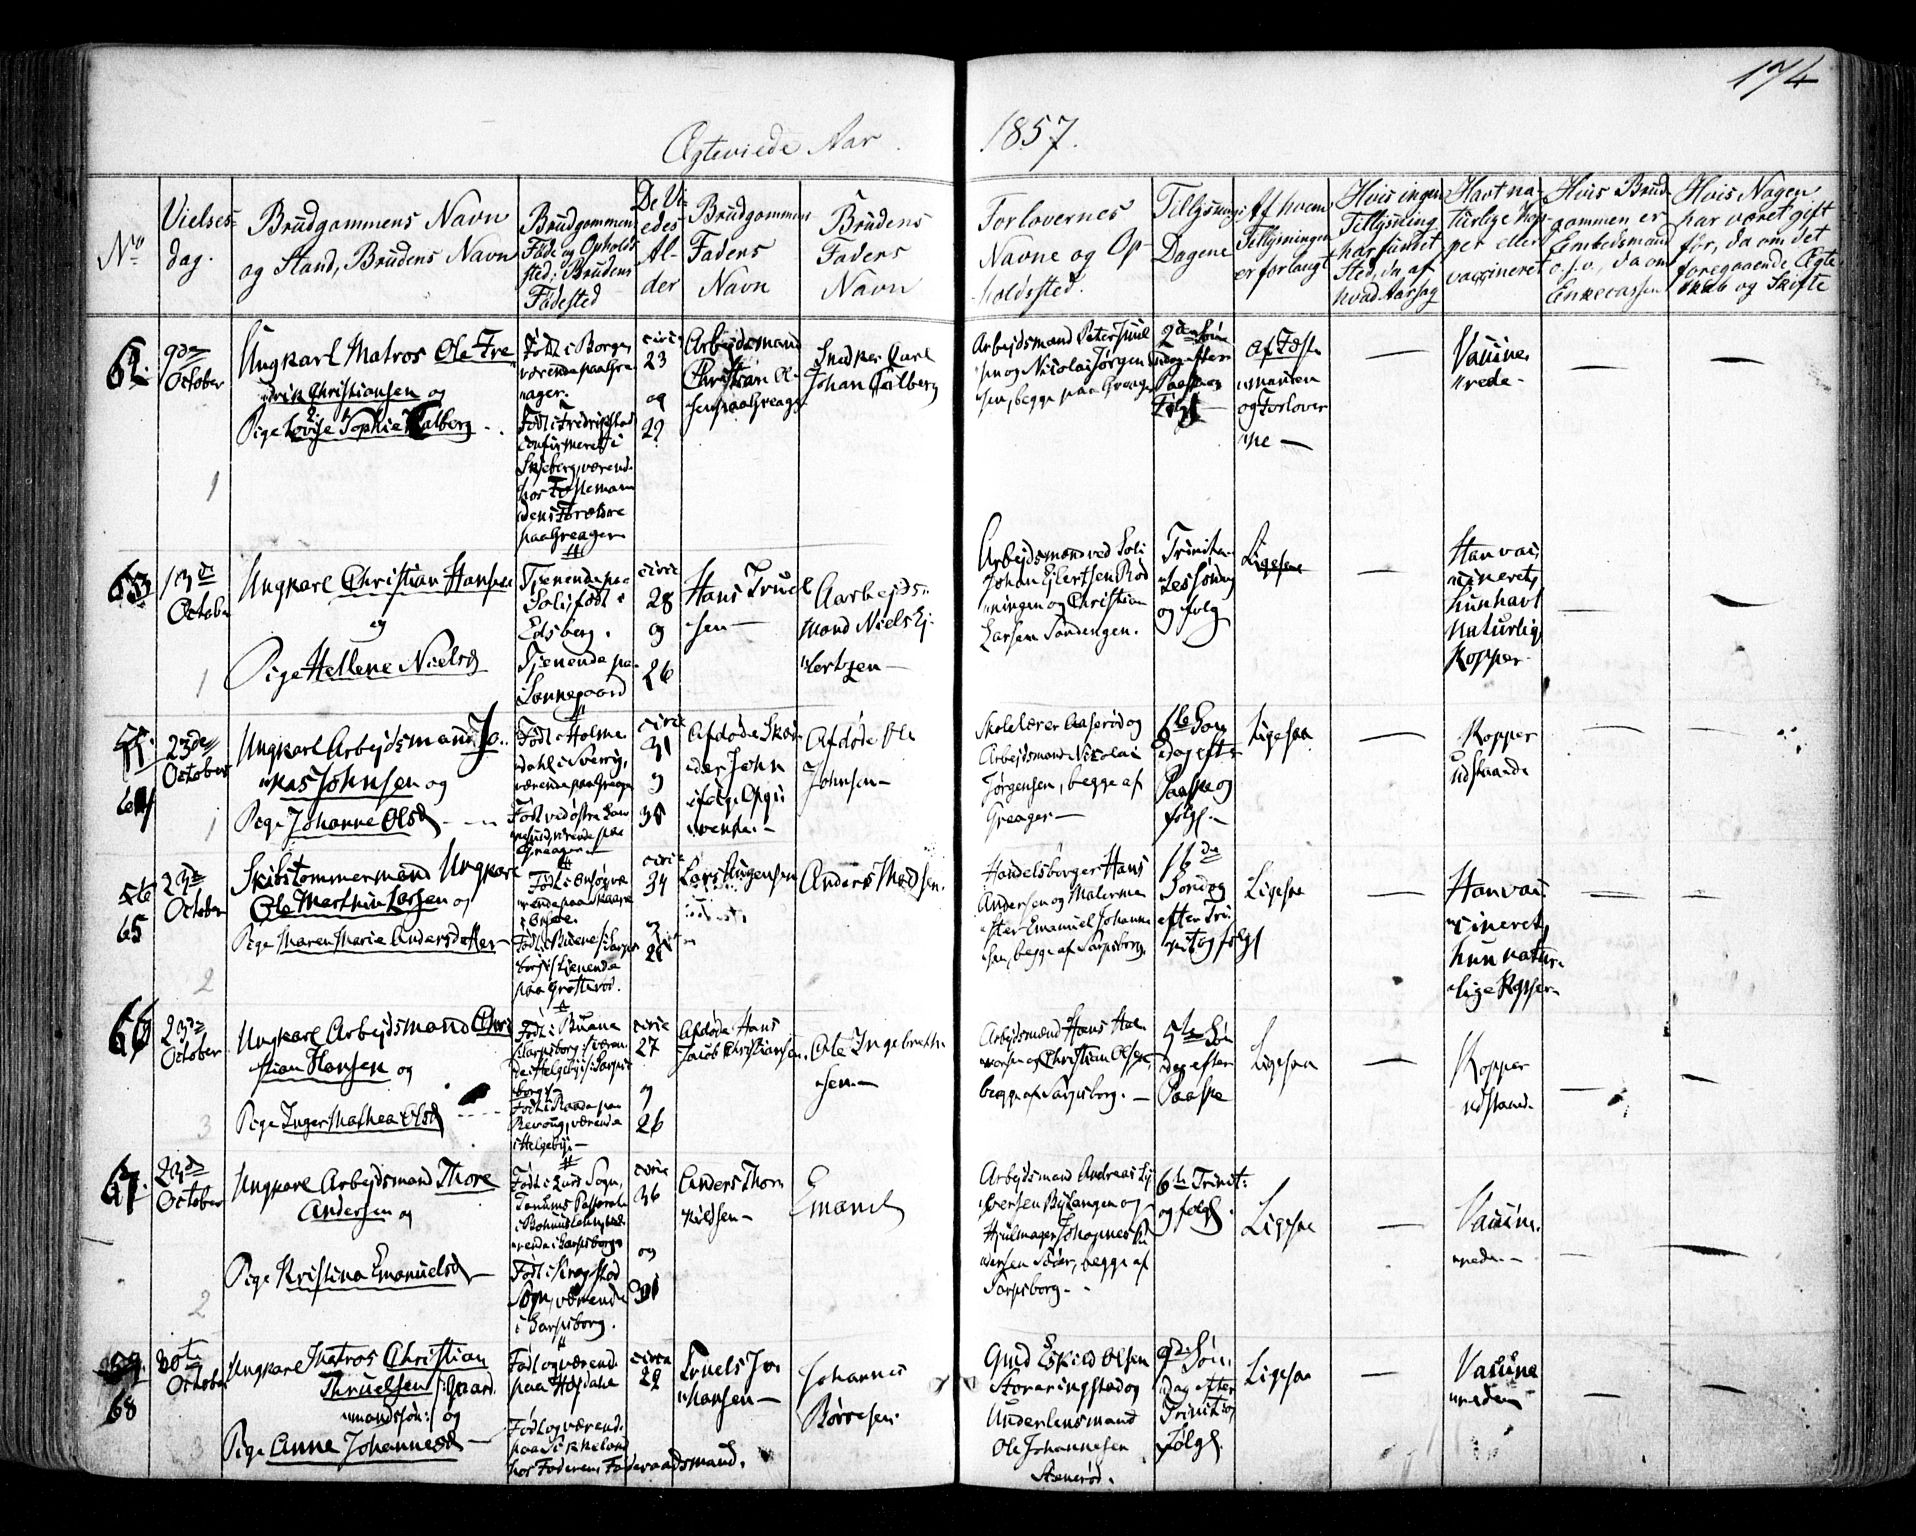 174
Ægteviede Aar 1857.
No
Vielses-
dag.
Brudgommens Navn
og Stand, Brudens Navn
Brudgommens
Føde og Opholds
sted; Brudens
Fødested
De Vi-
edes
Al-
der
Brudgommens
Faders
Navn
Brudens
Faders
Navn
Forlovernes
Navne og Op-
holdssted.
Tillysnings
Dagene
Af hvem
Tillysningen
er forlangt
Hvis ingen
Tillysning
har fundet
Sted, da, af
hvad Aarsag
Havt na-
turlige Kop-
per eller
vaccineret
Hvis Brud-
gommen er
Embedsmand
o.s.v., da om
Enkecassen
Hvis Nogen
har været gift
før, da om det
foregaaende Ægte
skab og Skifte
62.
9de
October
Ungkarl Matros Ole Fre
drik Christiansen og
Pige Lovise Sophie Calberg
1
Født i Borge,
værende paa Grea
ager.
Født i Fredrikstad
confirmeret i
Skjeberg, værend.
hos Fostemann
dens Forældre
paa Greager
circa
23
og
29
Arbejdsmand
Christian Ol-
sen paa Greager
Snedker Carl
Johan Calberg
Arbejdsmand Peter
sen og Nicolai Jørgen
sen, begge paa Greager
2den Søn
dag efter
Paaske og
Følg
Af Feste
manden
og Forlover
ne —
—
Vaccine
rede -
—
—
63
13de
October
Ungkarl Christian Hansen
og
Pige Hellene Nielsd
1
Tjenende paa
Soli, født i
Edsberg.
Tjenende paa
Sannegaard
circa
28
og
26
Hans Truel
sen —
Aarbejds-
mand Niels Ej-
lertsen —
Arbejdsmand ved Soli
Johan Ejlertsen Rød
ningen og Christian
Larsen Sandengen.
Trinita-
tes Søndag
og følg
Ligesaa
—
Han vac
cineret,
hun havt
naturlig
Kopper -
—
—
64
23de
October
Ungkarl Arbejdsmand Jo..
nas Johnsen og
Pige Johanne Olsd
1
Født i Holme
dahl i Sverrig,
værende paa Greager
Født ved østre
Greager
circa
31
og
38
Afdøde
der John
ifølge Opgi
vende. -
Afdøde Ole
Johnsen -
Skolelærer Aaserød og
Arbejdsmand Nicolai
Jørgensen, begge af
Greager —
6te Søn
dag efter
Paaske og
følg. -
Ligesaa
—
Kopper
udstaaende
56
65
23de
October
Skibstømmermand Ungkarl
Ole Marthin Larsen og
Pige Maren Marie Andersdatter
2
Født i Onsøe, væ
rende paa Skaare
i Onsøe.
Tjenende
paa Grotterød.
circa
34
og
28
Lars Mogensen
Anders Madsen.
Handelsborger Hans
Andersen og Malerme
ster Emanuel Johanne
sen, begge af Sarpsborg.
16de
Søndag
efter Tri
nit og følg
Ligesaa
—
Han vac
cineret,
hun natur
lige Kopper-
66
23de
October
Ungkarl Arbejdsmand Chri
stian Hansen og
Pige Inger Mathea Olsd
3
Født i Buene
Sarpsborg, væren
de i Helgeby i Sarps
borg
Født i Raade paa
værende
i Helgeby. —
circa
27
og
26
Afdøde Hans
Jacob Christiansen.
Ole Ingebreth-
sen. -
Arbejdsmænd Hans Hal
vorsen og Christian Olsen,
begge af Sarpsborg. —
5te Søn
dag efter
Paaske
Ligesaa
—
Kopper
udstand.
67.
23de
October
Ungkarl Arbejdsmand Thore
Andersen og
Pige Kristina Emanuelsd
2
Født i Lurs Sogn,
Tanums Pastorat
i Bohuus Lehn, væ
rende i Sarpsborg
Født i Krogstad
Sogn, værende
i Sarpsborg.
circa
36
og
31
Anders Thor
kildsen -
Emanuel
Arbejdsmand Andreas
Iversen Bylangen og
Hjulmager Johannes
dersen, begge af
Sarpsborg. -
6te Trinit:
og følg.
Ligesaa
—
Vaccine
rede. -
68
30te
October
Ungkarl Matros Christian
Thruelsen /:Gaard
mandssøn:/ og
Pige Anne Johannesd
3
Født og værend.
paa Hofdahl
Født og værend.
paa
hos Faderen Føderaadsmand.
circa
29
Truels Jo
hansen -
Johannes
Børresen.
Gmd Eskild Olsen
Storeringstad og
Underlensmand
Ole Johannesen
Stenerød.
9de Søn
dag efter
Trinit og
Følg.
Ligesaa
—
Vaccine
rede